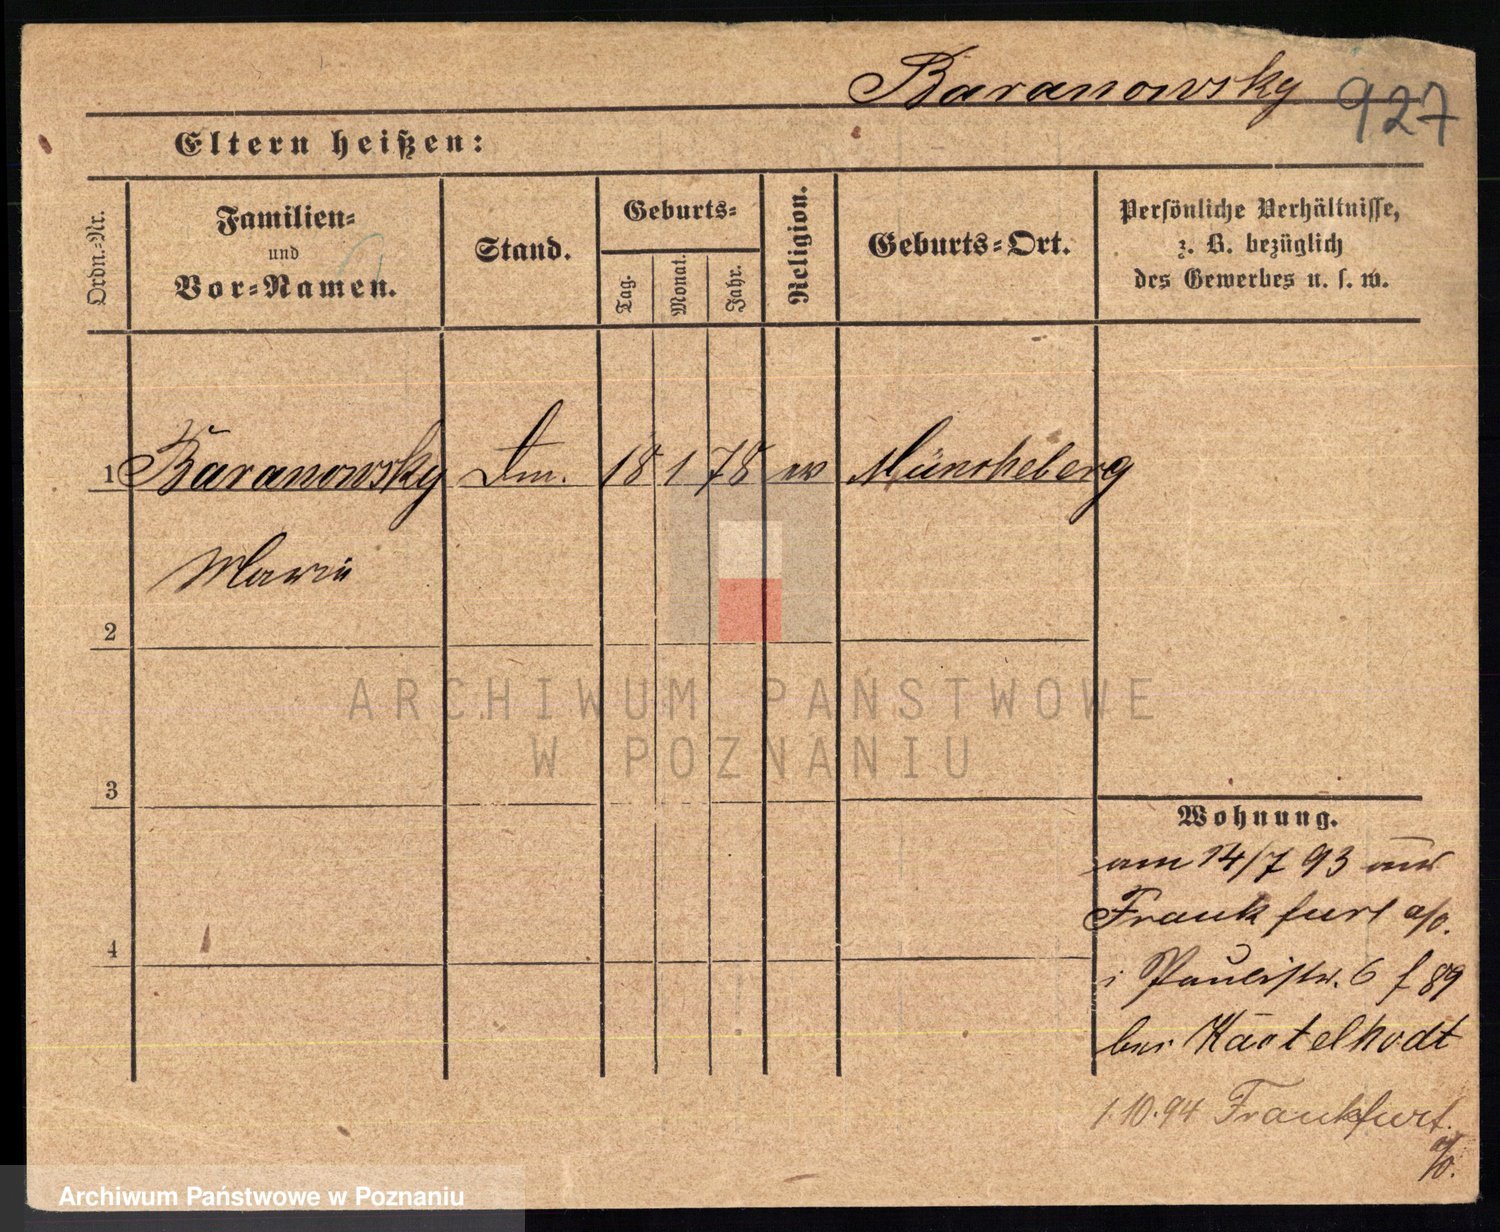 Baranowsky 927
Eltern heißen:
Ordn.-Nr.
Familien-
und
Vor-Namen.
Stand.
Geburts-
Tag.
Monat.
Jahr.
Religion.
Geburts-Ort.
Persönliche Verhältnisse,
z. B. bezüglich
des Gewerbes u. s. w.
1 Baranowsky Dm. 18 1 78 ev Müncheberg
Marie
2
ARCHIWUM PAŃSTWOWE
W POZNANIU
3
Wohnung.
am 14/7 93 aus
Frankfurt a/o.
i Paulistr. 6 f 89
bei
4
1.10.94 Frankfurt.
a/o.
Archiwum Państwowe w Poznaniu